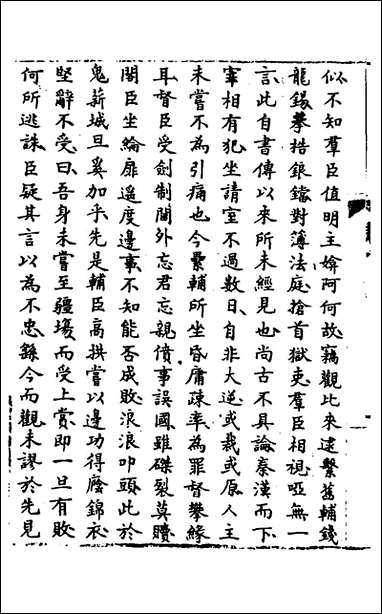 似不知羣臣值明主媕阿何故竊觀比來逮繫舊輔錢
龍錫拲梏鋃鐺對薄法庭搶首獄吏羣臣相視啞無一
言此自書傳以來所未經見也尚古不具論秦漢而下
宰相有犯坐請室不過數日自非大逆或裁或原人主
未嘗不為引痛也今纍輔所坐昏庸疎率為罪督攀緣
耳督臣受劍制閫外忘君忘親僨事誤國雖磔裂莫贖
閣臣坐綸扉遥度邊事不知能否成敗浪浪叩頭此於
鬼薪城旦奚加乎先是輔臣高拱嘗以邊功得廕錦衣
堅辭不受曰吾身未嘗至疆埸而受上賞即一旦有敗
何所逃誅臣疑其言以為不忠繇今而觀未謬於先見